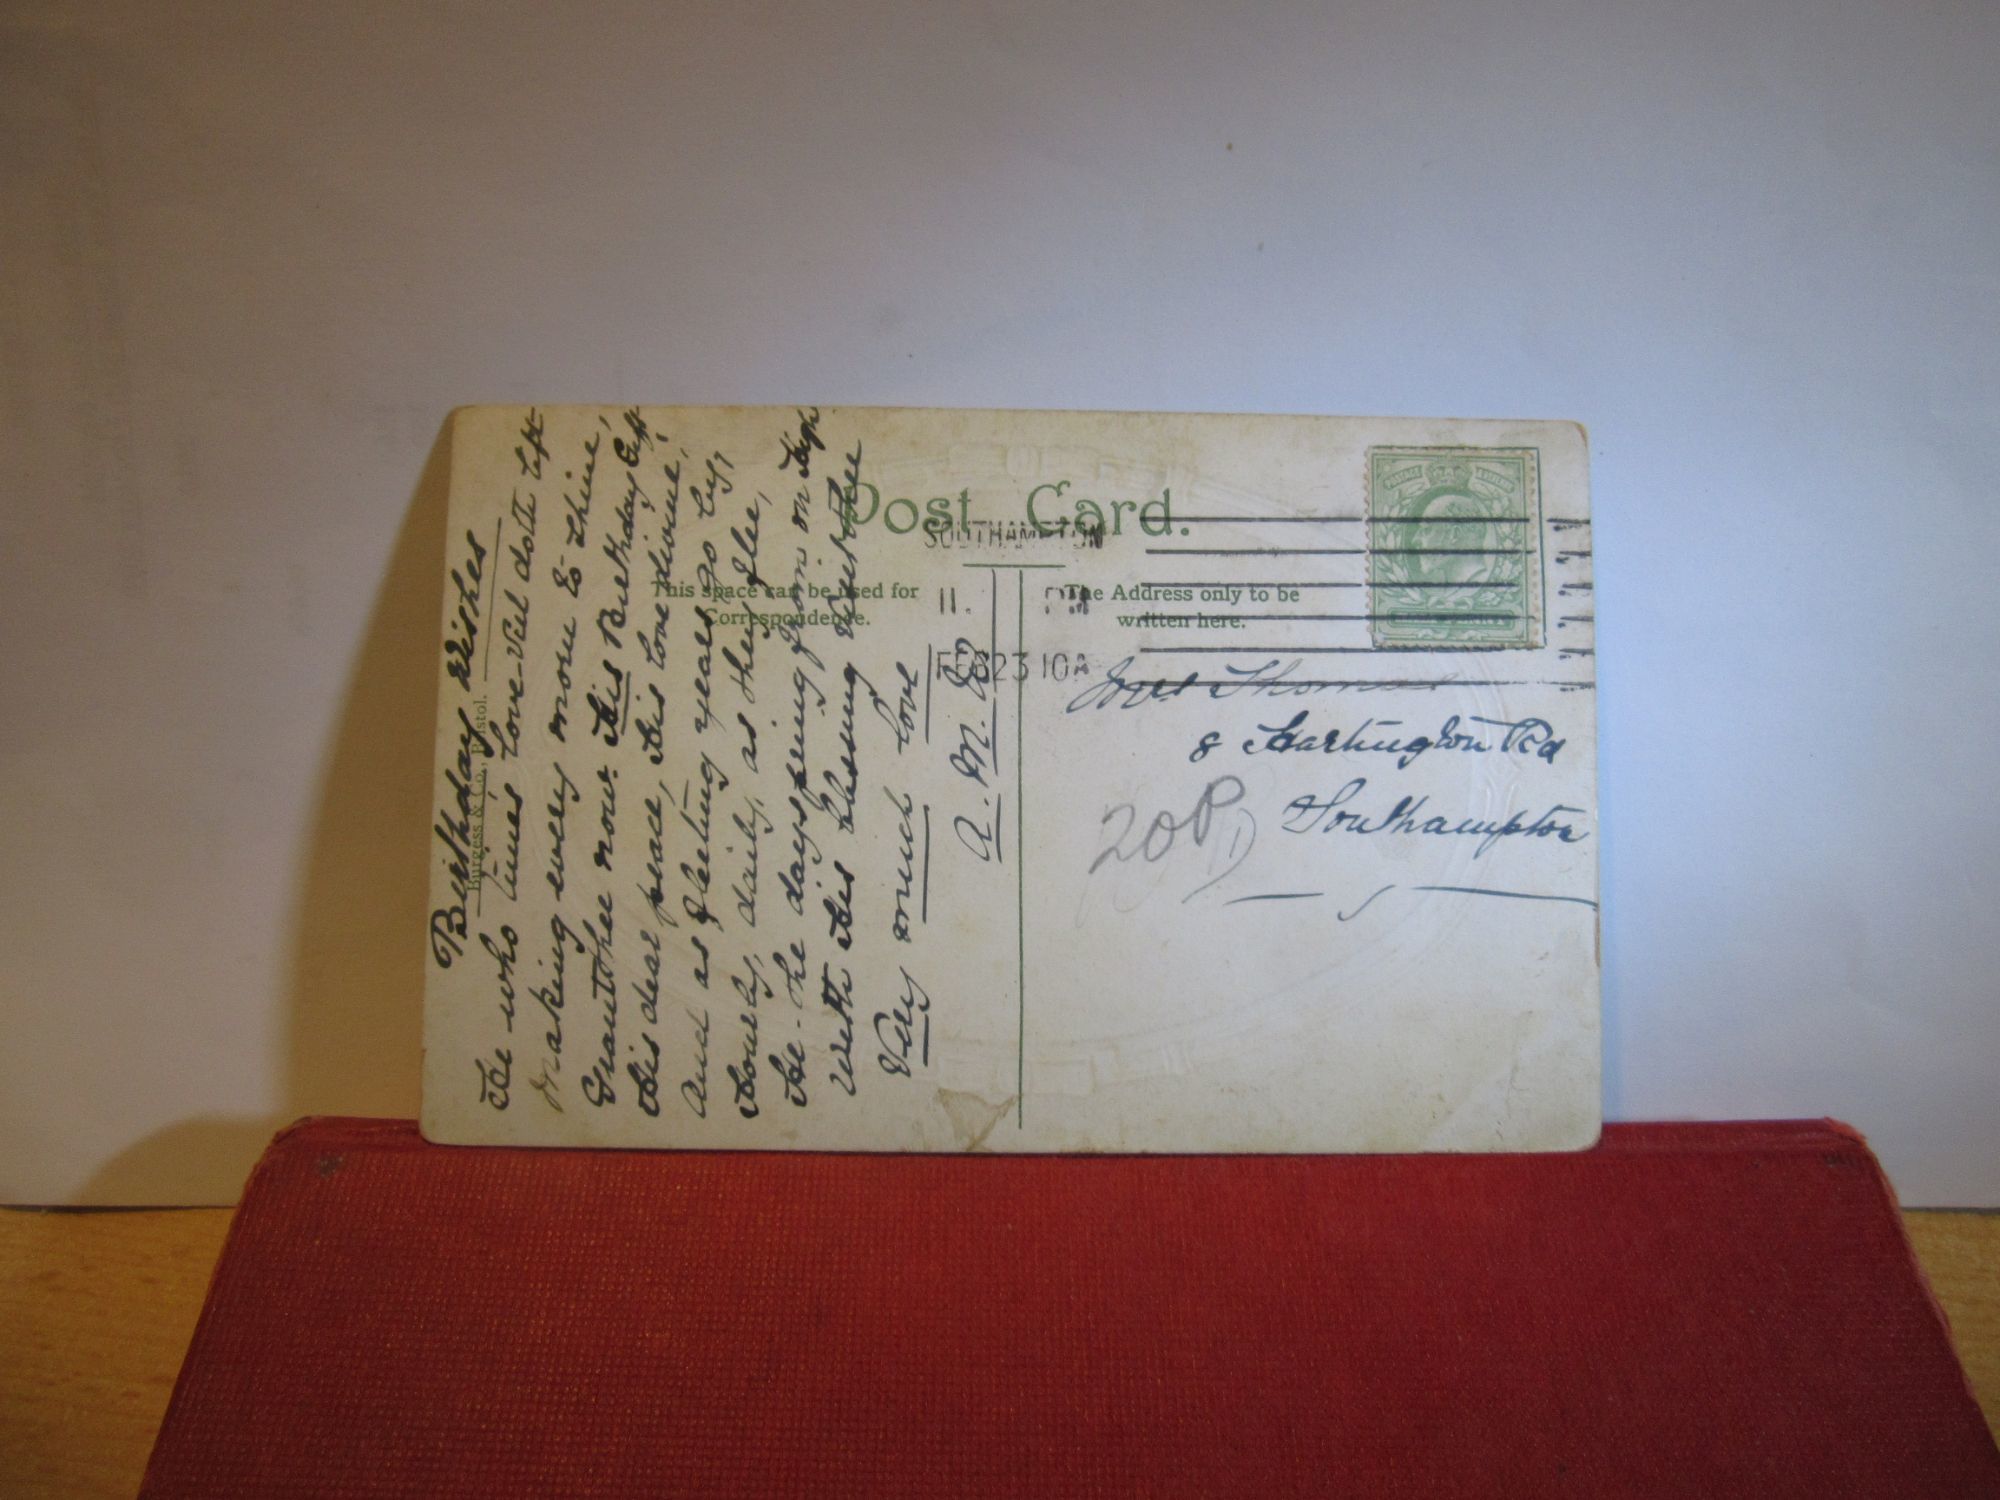 Post Card.
SOUTHAMPTON
11. PM
FEB 23 10A
This space can be used for
Correspondence.
The Address only to be
written here.
Burgess & Co., Bristol.
Birthday Wishes
He who times love-veil doth lift
Making every morn to shine,
Grant thee now His Birthday Gift
His dear peace, His love divine,
And as fleeting years go by,
Hourly, daily, as they flee,
He - the dayspring from on High
With His blessing visit thee
Very much love
A. M. B.
POSTAGE & REVENUE
Mrs Thomas
8 Hartington Rd
Southampton
20P